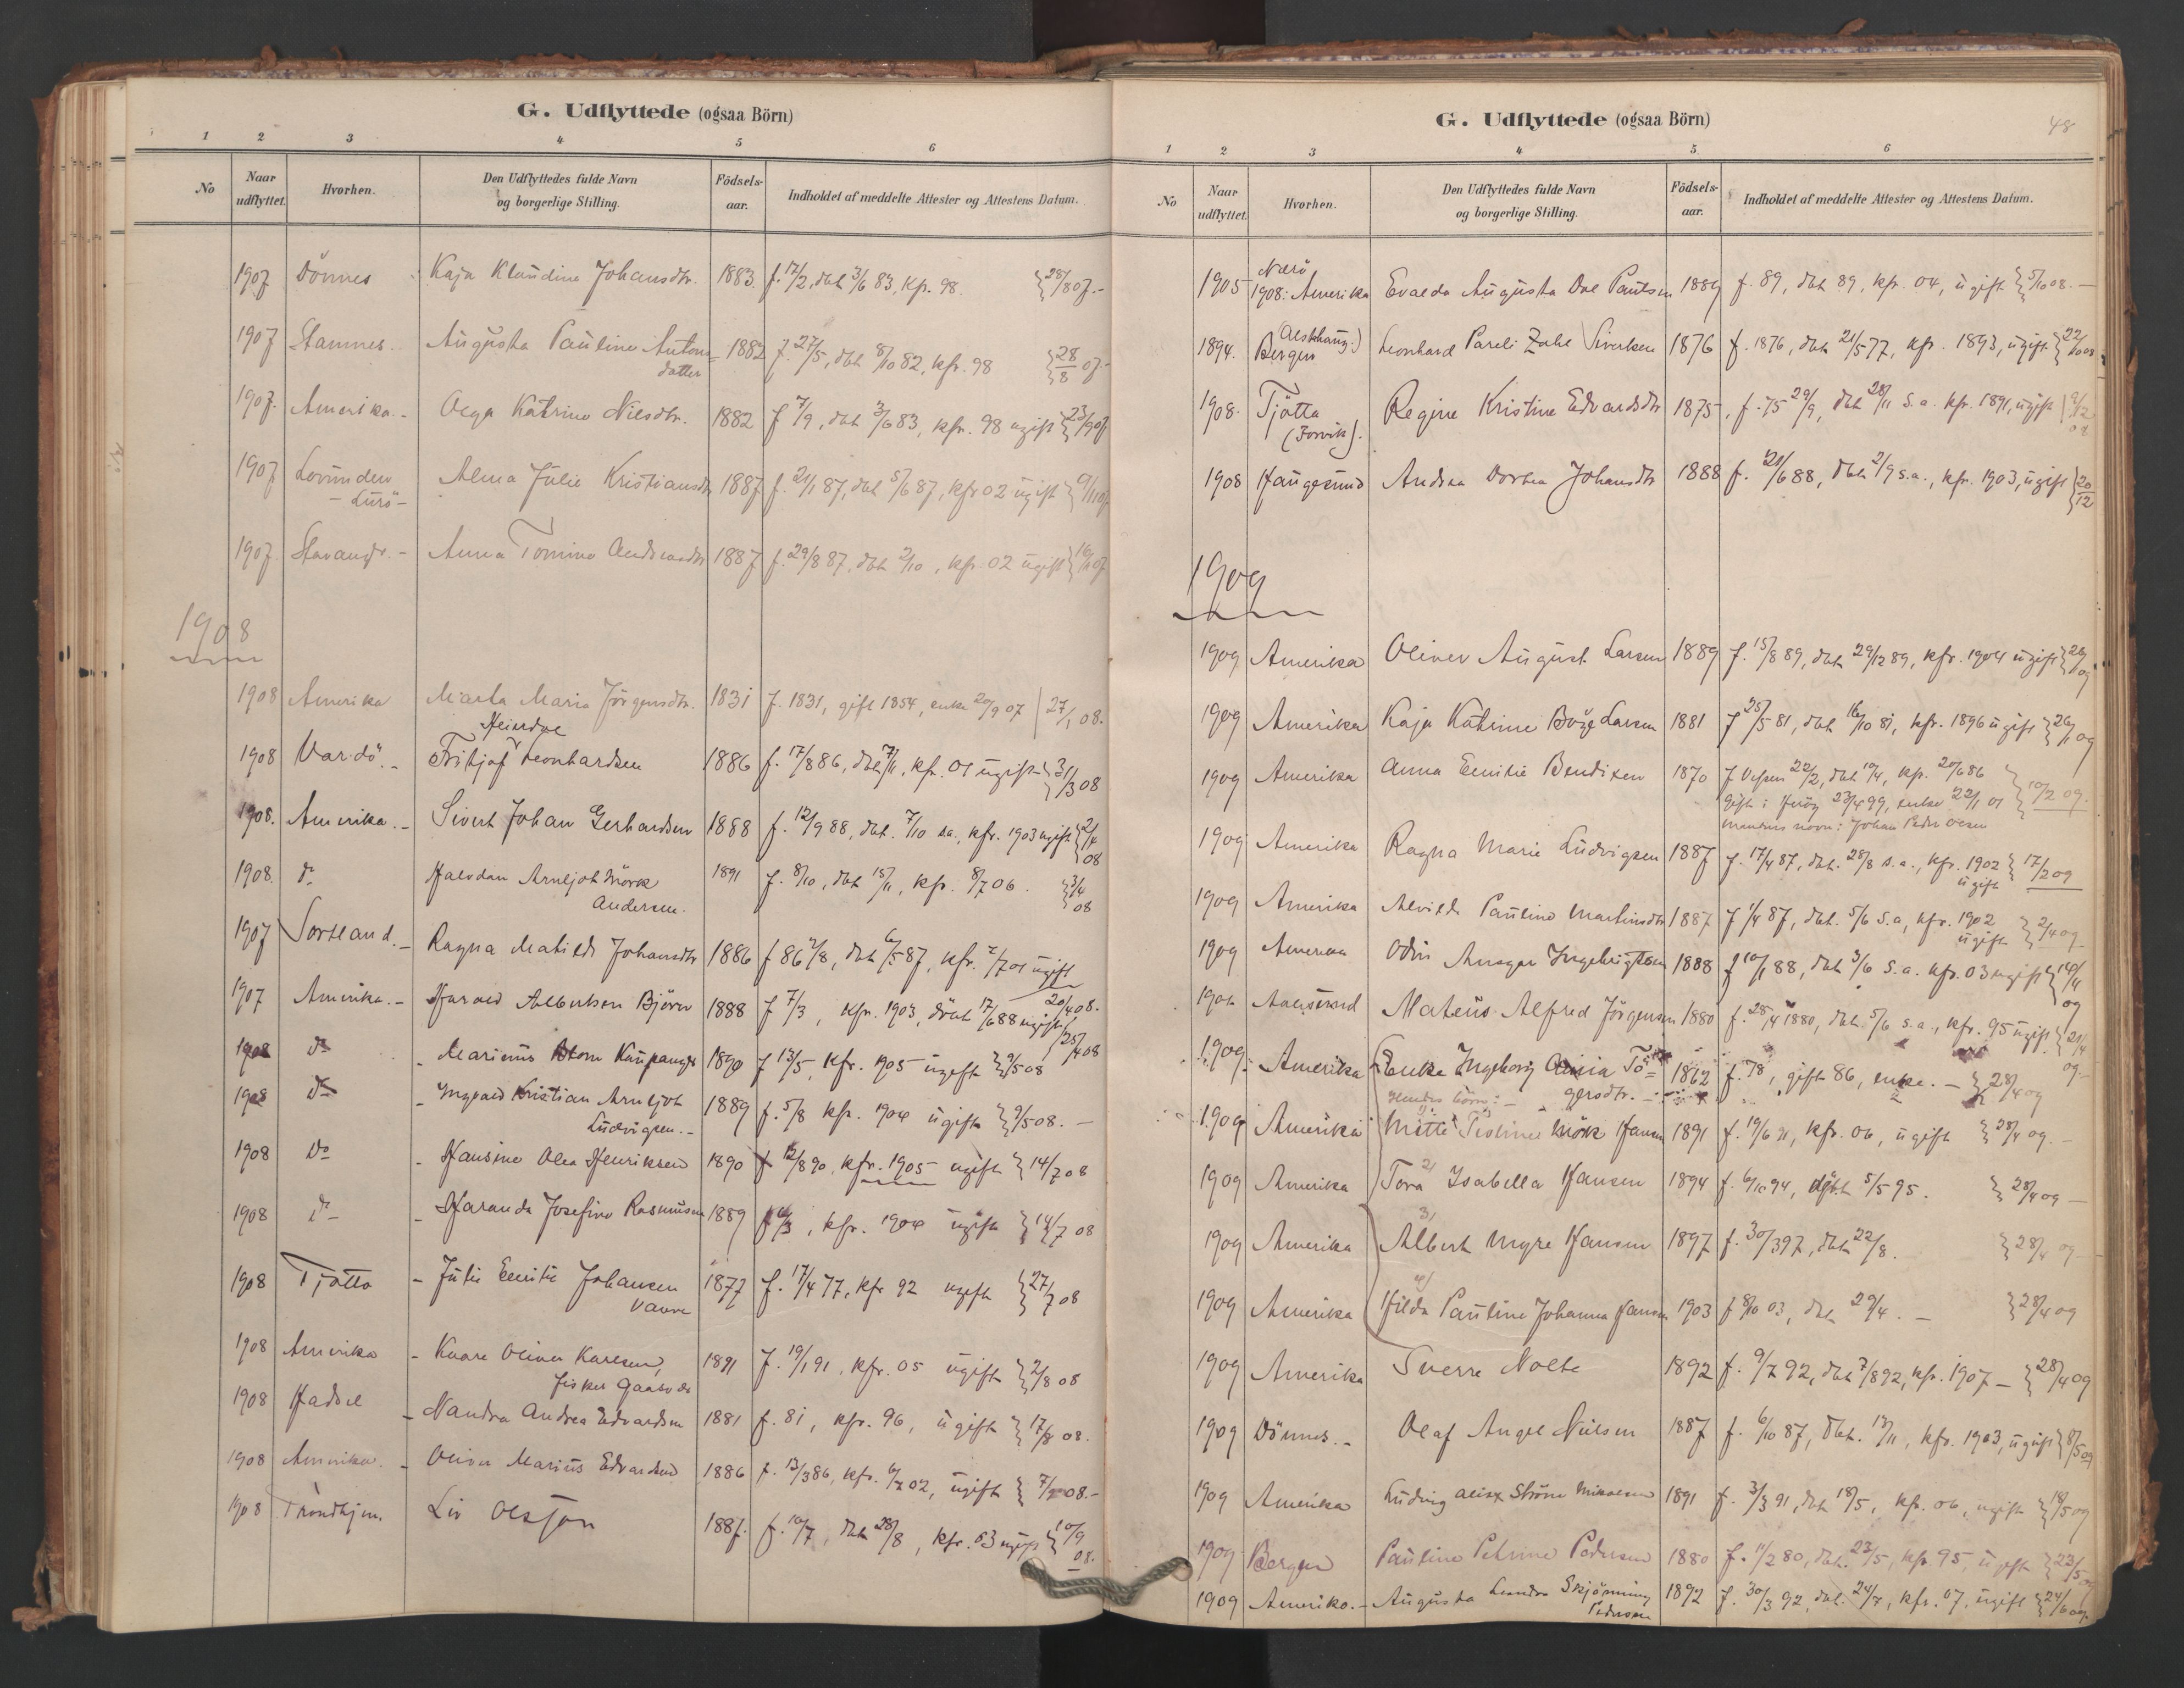 G. Udflyttede (ogsaa Börn)
1 2 3 4 5 6
No Naar udflyttet. Hvorhen. Den Udflyttedes fulde Navn og borgerlige Stilling. Födsels-aar. Indholdet af meddelte Attester og Attestens Datum.
1907 Dönnes Kaja Klaudine Johansdtr. 1883. f. 17/2, dbt 3/6 83, kfr. 98. 28/8 07.-
1907 Stamnes. Augusta Pauline Antons 1882 f. 27/5, dbt 8/10 82, kfr. 98 28/8 07.-
datter
1907. Amerika.- Olga Katrine Nilsdtr. 1882 f 7/9, dbt 3/6 83, kfr. 98 ugift 23/9 07
1907 Lovunden Alma Julie Kristiansdtr 1887 f. 21/1 87, dbt 5/6 87, kfr 02 ugift
- Lurö -
1907. Stavangr.- Anna Tomine Andreasdtr 1887 f. 29/8 87, dbt 2/10, kfr. 02 ugift 16/ 07
1908
1908 Amerika Marta Maria Jörgensdtr. 1831 f. 1831, gift 1854, enke 20/9 07 27/1 08.
Heierdal
1908 Vardö.- Fritjof Leonhardsen 1886 f. 17/8 86, dbt 7/11, kfr. 01 ugift 31/3 08
1908. Amerika.- Sivert Johan Gerhardsen 1888 f. 12/9 88, dbt. 7/10 s.a., kfr. 1903 ugift 2/4 08
1908. do Halvdan Arneljot Mörk 1891 f. 8/10, dbt 15/11, kfr. 8/7 06. 3/4 08
Andersen.
1907 Sortland.- Ragna Matilde Johansdtr 1886 f 86 2/8, dbt 6/5 87, kfr. 2/7 01 ugift
20/4 08.
1907 Amerika.- Harald Albertsen Björn 1888 f 7/3, kfr. 1903, döbt 17/6 88 ugift 25/4 08
1908 do - Marinus 1890 f 13/5, kfr. 1905 ugift 9/5 08
1908 do - Ingvald Kristian Arneljot 1889 f. 5/8 kfr. 1904 ugift 9/5 08.-
Ludvigsen.-
1908 Do - Hansine Olea Henriksen 1890 f 12/8 90, kfr. 1905 ugift 14/7 08
1908 do - Haranda Josefine Rasmussen 1889 f /3, kfr. 1904 ugift 14/7 08
1908 Tjötta - Julie Emilie Johansen 1877 f. 17/4 77, kfr 92 ugift 27/7 08
1908 Amerika - Kaare Oliver Karlsen, 1891 f. 19/1 91, kfr. 05 ugift 2/8 08
fisker
1908 Hadsel - Nandra Andrea Edvardsen 1881 f. 81, kfr. 96, ugift 17/8 08.
1908 Amerika. - Oliver Marius Edvardsen 1886 f. 13/3 86, kfr. 6/7 02, ugift 08.-
1908 Trondhjem. Liv Olsson 1887. f. 10/7, dbt 28/8, kfr. 03 ugift 10/9 08.
G. Udflyttede (ogsaa Börn)
48
1 2 3 4 5 6
No Naar udflyttet. Hvorhen. Den Udflyttedes fulde Navn og borgerlige Stilling. Födsels-aar. Indholdet af meddelte Attester og Attestens Datum.
Nærö
1905 1908: Amerika Evalda Augusta Dal Paulsen 1889 f. 89, dbt 89, kfr. 04, ugift 5/10 08.-
(Alsthaug:)
1894. Bergen Leonhard Pareli Zahl Sivertsen 1876 f. 1876, dbt 21/5 77, kfr. 1893, ugift 22/10 08
1908. Tjötta Regine Kristine Edvardsdtr 1875. f. 75 29/9, dbt 28/11 s.a. kfr. 1891, ugift 9/12 08
(Forvik).
1908 Haugesund Andrea Dortea Johansdtr 1888 f. 21/6 88, dbt 2/9 s.a., kfr. 1903, ugift 20/12
1909
1909 Amerika Oliver August Larsen 1889 f. 15/8 89, dbt 29/12 89, kfr. 1904 ugift 09
1909 Amerika Kaja Katrine Larsen 1881 f 25/5 81, dbt 16/10 81, kfr. 1896 ugift 26/1 09
1909 Amerika Anna Emilie Bendiksen 1870 f Vefsen 22/2, dbt 10/4, kfr. 20/6 86 10/2 09.
gift i Herøy 23/4 99, enke 22/1 01
mandens navn: Johan Peder Olsen
1909 Amerika Ragna Marie Ludvigsen 1887 f. 17/4 87, dbt. 28/8 s.a., kfr. 1902 17/2 09
ugift
1909 Amerika Alvilde Pauline Martinsdtr 1887 f 1/4 87, dbt. 5/6 s.a, kfr. 1902 2/4 09
ugift
1909 Amerika Odin Ansgar Ingebrigtsen 1888 f 10/1 88, dbt 3/6 s.a. kfr. 03 ugift 14/4 09
1901 Aalesund Mateus Alfred Jörgensen 1880 f. 28/4 1880, dbt. 5/6 s.a., kfr. 95 ugift 21/4 09.-
1909. Amerika Enke Ingeborg Tö- 1862 f. 78, gift 86, enke.- 28/4 09
Hendes börn:- gersdtr.-
1909 Amerika 1) Mette Tistine Mörk Hansen 1891 f. 19/6 91, kfr. 06, ugift 28/4 09.-
1909 Amerika 2) Tora Isabella Hansen 1894 f. 6/10 94, döbt 5/5 95. 28/4 09-
1909 Amerika 3) Albert Myre Hansen 1897 f. 30/3 97, dbt 22/8. 28/4 09-
1909 Amerika 4) Hilda Pauline Johanna Hansen 1903 f 8/10 03, dbt 29/4.- 28/4 09
1909 Amerika Sverre Nolte 1892 f. 9/7 92, dbt 7/8 92, kfr. 1907- 28/4 09
1909 Dönnes.- Olaf Angel Nielsen 1887 f. 6/10 87, dbt. 13/11, kfr. 1903, ugift 8/5 09
1909 Amerika Ludvig Ström Mikalsen 1891 f. 3/3 91, dbt 18/5, kfr. 06, ugift 18/5 09
1909 Bergen Pauline Petrine Pedersen 1880 f. 11/2 80, dbt. 23/5, kfr. 95, ugift 23/5 09
1909 Amerika.- Augusta Leandra Skjönning 1892 f. 30/3 92, dbt. 24/7, kfr. 07, ugift 24/6 09.
Pedersen